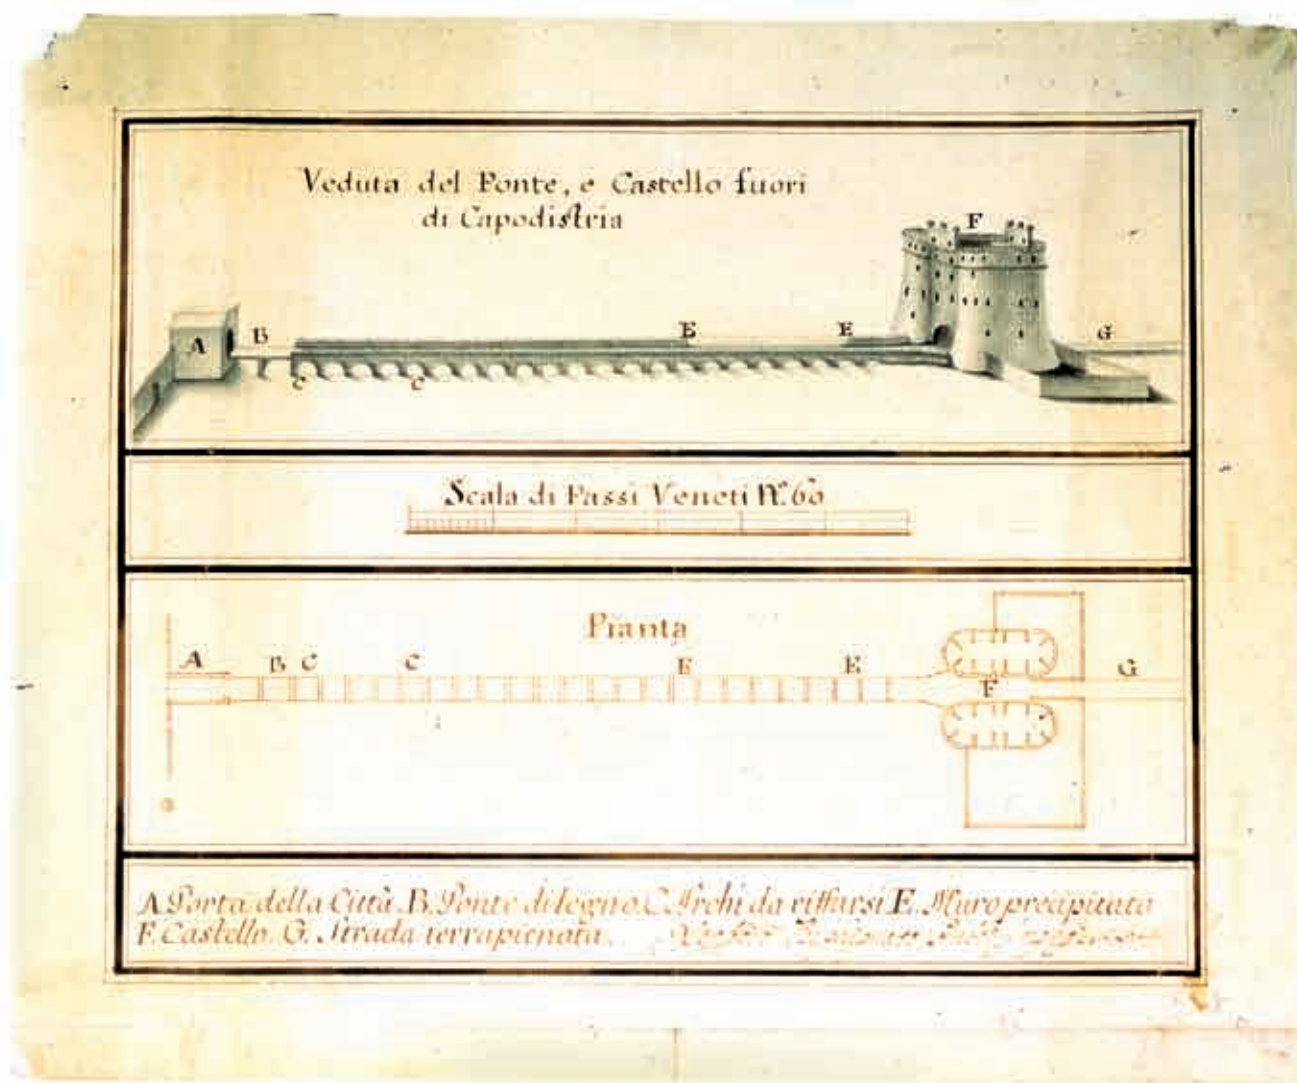 Veduta del Ponte, e Castello fuori
di Capodistria
F
A B E E G
C C
Scala di Passi Veneti N.º 60
Pianta
A B C C E E G
F
A. Porta della Città. B. Ponte di legno. C. Archi da riffarsi. E. Muro precipitato
F. Castello. G. Strada terrapienata.